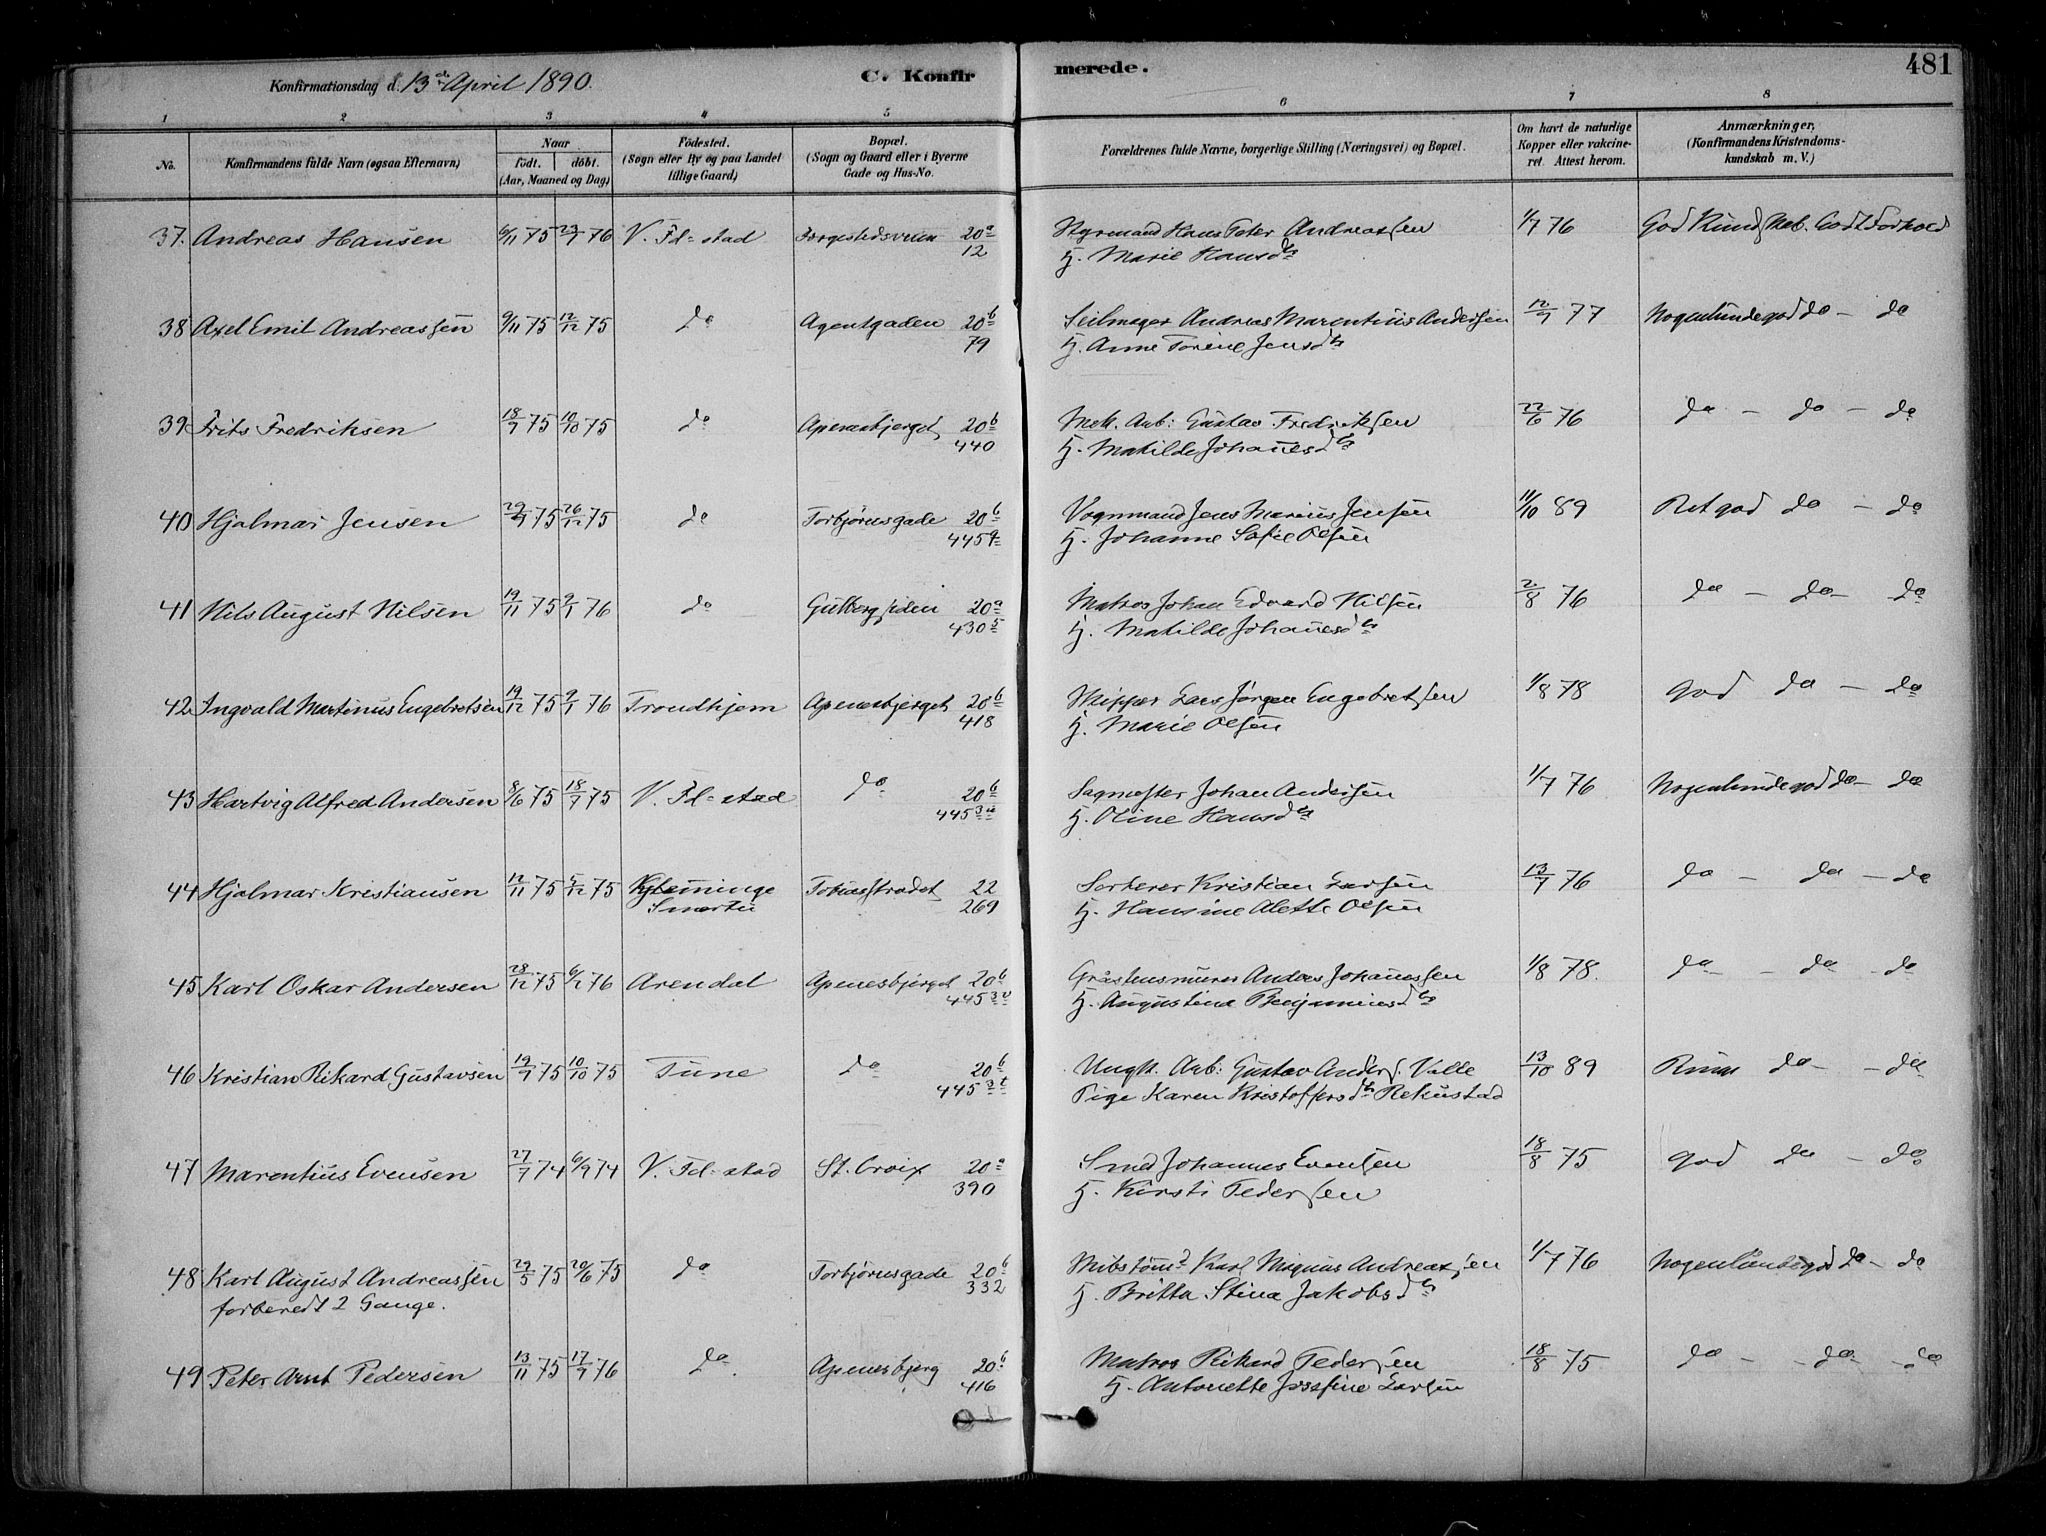 Konfirmationsdag d. 13de April 1890.
C. Konfirmerede.
481
1 2 3 4 5 6 7 8
No.
Konfirmandens fulde Navn (ogsaa Efternavn)
Naar
födt. döbt.
(Aar, Maaned og Dag)
Födested.
(Sogn eller By og paa Landet
tillige Gaard)
Bopæl.
(Sogn og Gaard eller i Byerne
Gade og Hus-No.
Forældrenes fulde Navne, borgerlige Stilling (Næringsvei) og Bopæl.
Om havt de naturlige
Kopper eller vakcine-
ret. Attest herom.
Anmærkninger,
(Konfirmandens Kristendoms-
kundskab m. V.)
37. Andreas Hansen 6/11 75 23/7 76 V. Fd=stad 20a Styrmand Hans Peter Andreassen 1/7 76 God Kundskab. Godt Forhold
12 H. Marie Hansdtr
38 Axel Emil Andreassen 9/11 75 12/12 75 do Agentgaden 20b Seilmager Andreas Marentius Andersen 12/7 77 Nogenlunde god do - do
79 H. Anne Torine Jensdtr
39 Frits Fredriksen 18/7 75 10/10 75 do Apenesbjerget 20b Mek. Arb: Gustav Fredriksen 22/6 76 do - do - do
440 H. Matilde Johannesdtr
40 Hjalmar Jensen 29/9 75 26/12 75 do Torbjørnsgade 20b Vognmand Jens Marius Jensen 11/10 89 Ret god do - do
445q H. Johanne Sofie Olsen
41 Nils August Nilsen 19/11 75 9/1 76 do Gulbergsiden 20a Matros Johan Edvard Nilsen 2/8 76 do - do - do
430 5 H. Matilde Johannesdtr
42 Ingvald Martinus Engebretsen 19/12 75 9/1 76 Trondhjem Apenesbjerget 20b Skipper Lars Jørgen Engebretsen 1/8 78 god do - do
418 H. Marie Olsen
43 Hartvig Alfred Andersen 8/6 75 18/7 75 V. Fd=stad do 20b Sagmester Johan Andersen 1/7 76 Nogenlunde god do - do
445 H. Oline Hansdtr
44 Hjalmar Kristiansen 12/11 75 5/12 75 22 Sorterer Kristian Larsen 13/7 76 do - do - do
269 H. Hansine Alette Olsen
45 Karl Oskar Andersen 28/12 75 76 Arendal Apenesbjerget 20b Gråstensmurer Anders Johannessen 1/8 78. do - do - do
445 H. Augustina Benjaminsdtr
46 Kristian Rikard Gustavsen 19/7 75 10/10 75 Tune do 20b Ungk. Arb: Gustav Anders. Valle 13/10 89 do - do
445 Pige Karen Kristoffersdtr Rekustad
47 Marentius Evensen 27/7 74 6/9 74 V. Fd-stad St. Croix 20a Smed Johannes Evensen 18/8 75 god do - do
390 H. Kirsti Pedersen
48 Karl August Andreassen 29/5 75 20/6 75 do Torbjørnsgade 20b Skibstømd Karl Magnus Andreassen 1/7 76 Nogenlunde god do - do
forberedt 2 Gange. 332 H. Britta Stina Jakobsdtr
49 Peter Arnt Pedersen 13/11 75 17/9 76 do. Apenesbjerg 20b Matros Rikard Pedersen 18/8 75 do - do - do
416 H. Antonette Josefine Larsen